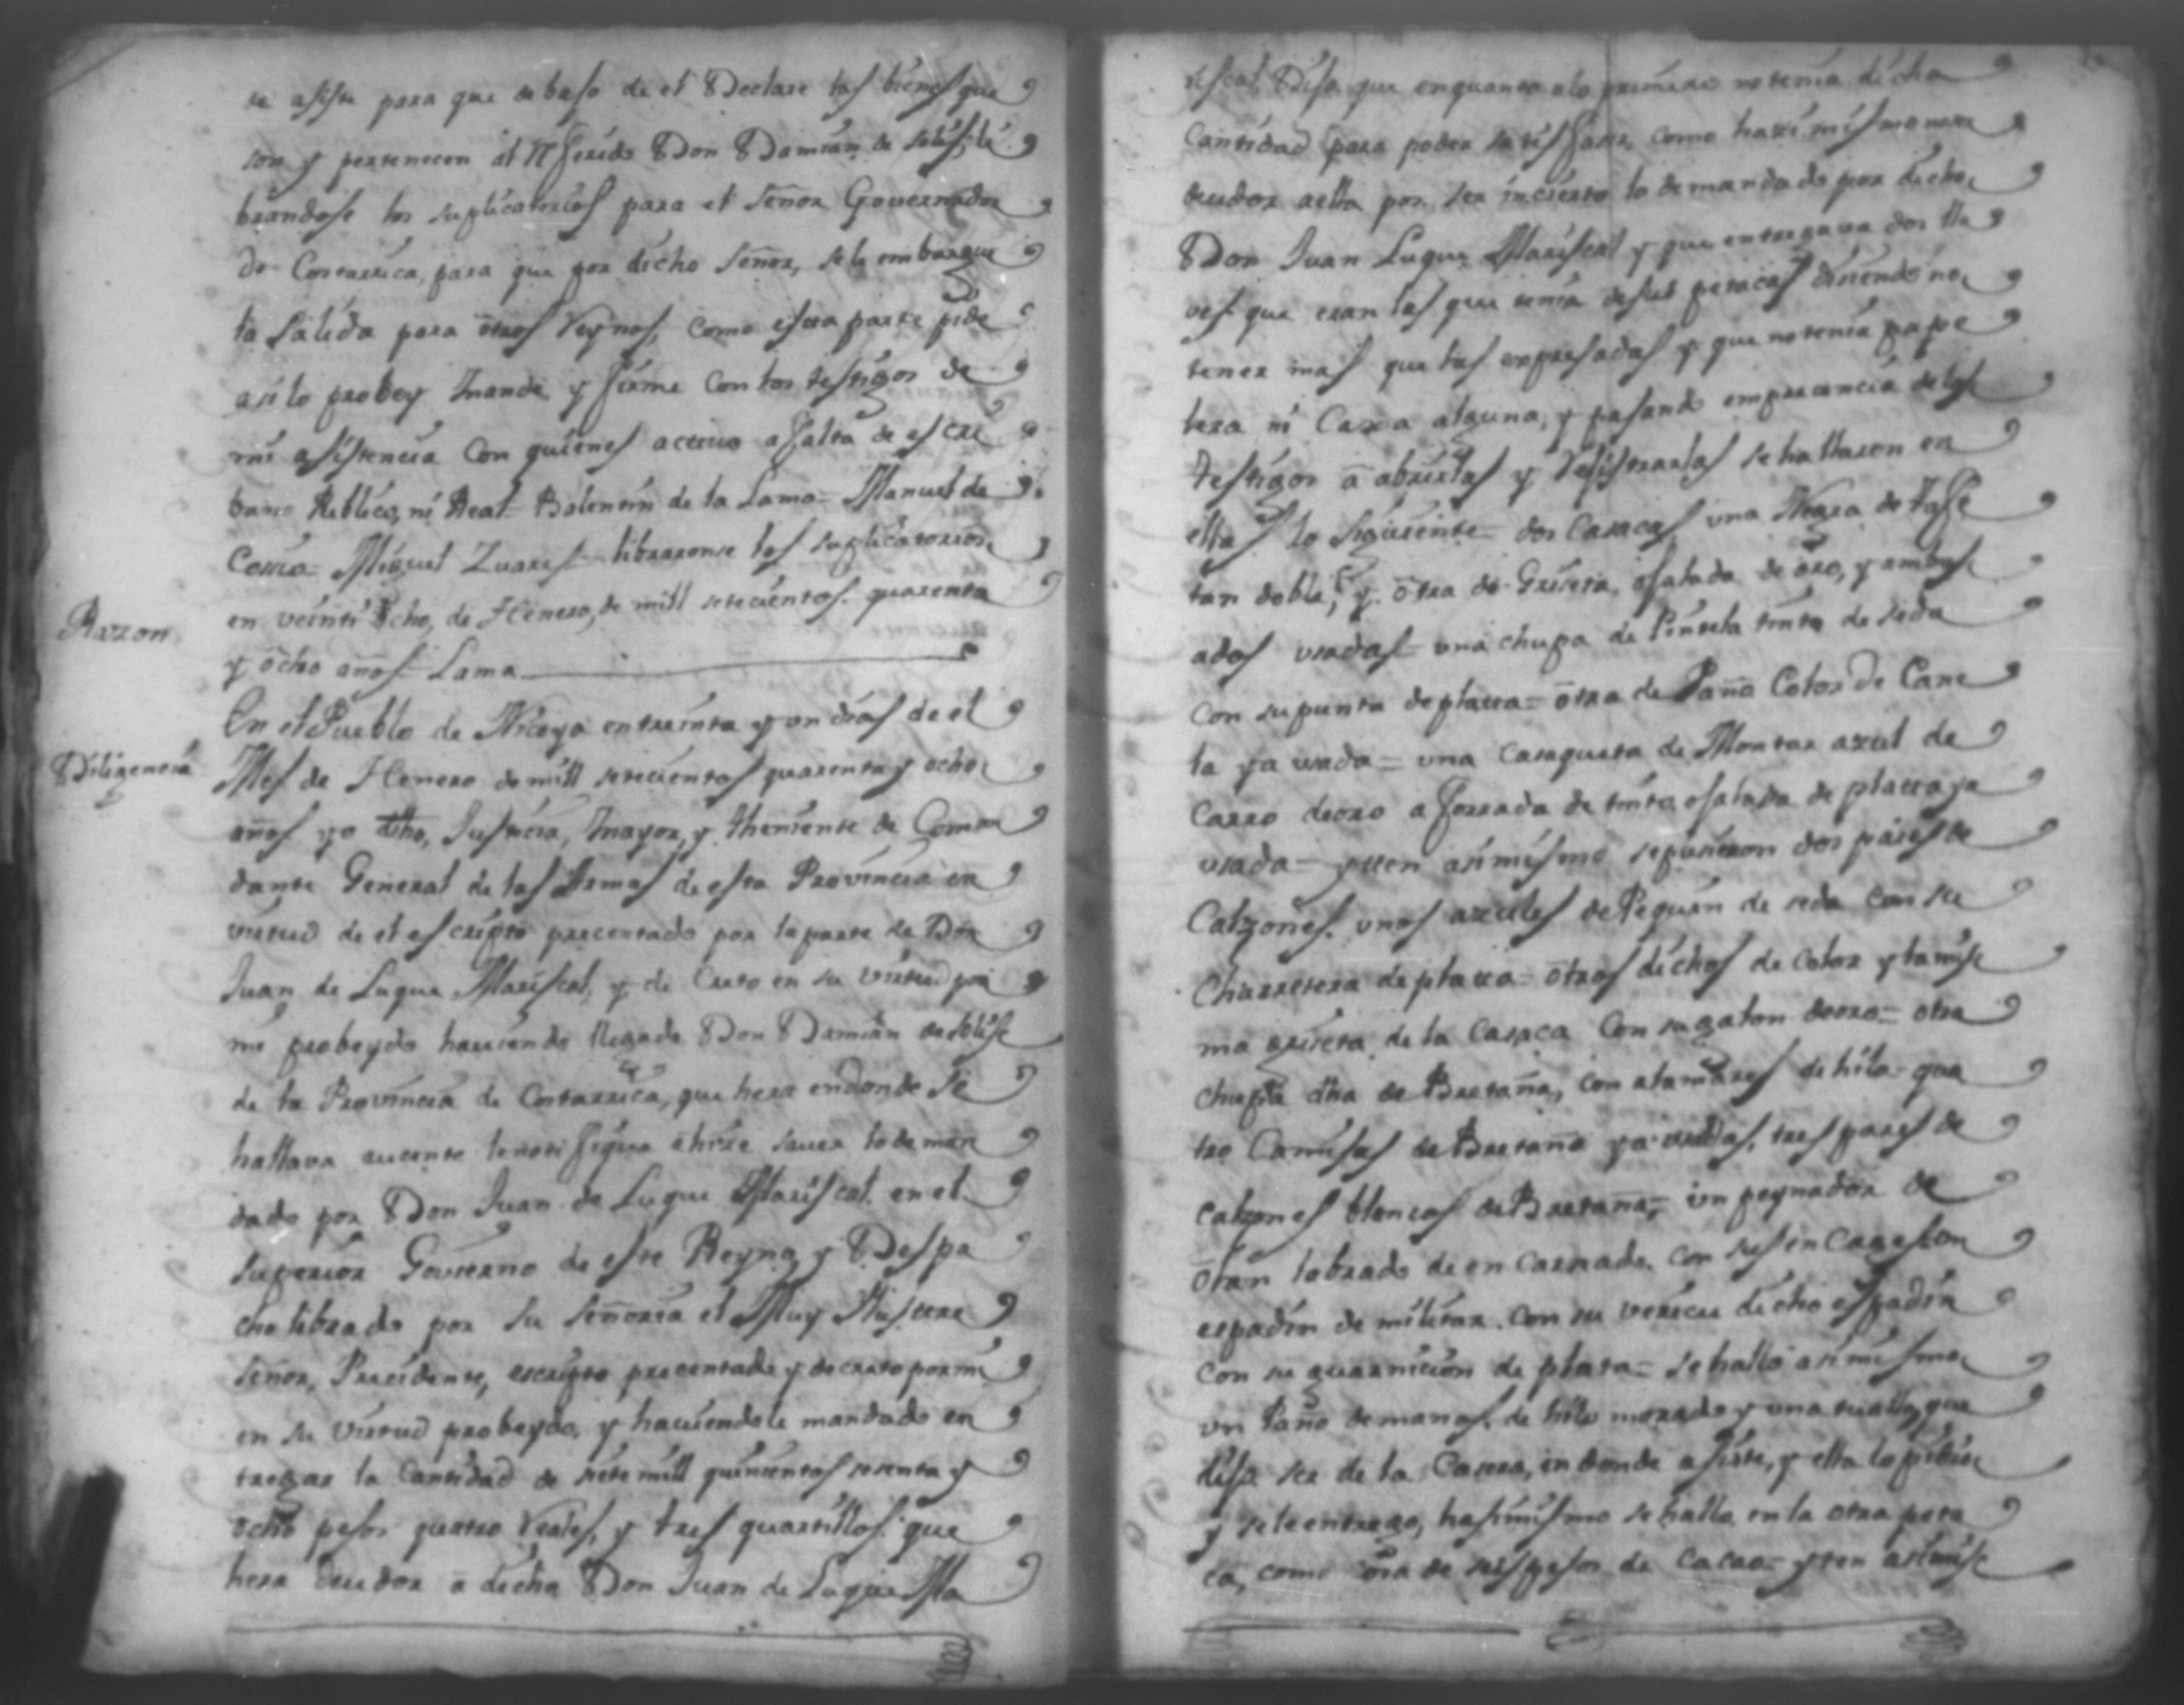 se asiste para que debajo de el Declare los bienes que
son y pertenecen al Referido Don Damian de Solis, li
brandose los suplicatorios para el señor Governador
de Costarrica, para que por dicho señor, se le embargue
la salida para otros Reynos, como esta parte pide
asi lo probey mande y firme con los testigos de
mi asistencia con quienes actuo a falta de escri
bano Publico, ni Real Balentin de la Lama = Manuel de
Coria = Miguel Zuares = libraronse los suplicatorios
Razon
en veinti ocho, de Henero, de mill setecientos quarenta
y ocho años = Lama
En el Pueblo de Nicoya en treinta y un dias de el
Diligencia
Mes de Henero de mill setecientos quarenta y ocho
años yo dho, Justicia, mayor, y theniente de Coman
dante General de las Armas de esta Provincia en
virtud de el escripto precentado por la parte de Don
Juan de Luque Mariscal, y de Creto en su virtud por
mi probeydo haviendo llegado Don Damian de Solis
de la Provincia de Costarrica, que hera en donde se
hallava aucente le notifique e hize saver lo deman
dado por Don Juan de Luque Mariscal en el
superior Govierno de este Reyno y Despa
cho librado por su señoria el Muy Illustre
señor, Precidente, escripto precentado y decreto por mi
en su virtud probeydo, y haviendole mandado en
tregar la Cantidad de siete mill quinientos sesenta y
ocho pesos quatro reales, y tres quartillos que
hera deudor a dicho Don Juan de Luque Ma
riscal Dijo que en quanto a lo primero no tenia dicha
Cantidad para poder satisfaser, como haximismo no era
deudor a ella por ser incierto lo demandado por dicho
Don Juan Luque Mariscal y que entregava dos lla
ves que eran las que tenia de sus petacas diciendo no
tener mas que las expresadas y que no tenia pape
lera ni Caxa alguna, y pasando en precencia de los
testigos a abrirlas y Registrarlas se hallaron en
ellas lo siguiente = dos Casacas una Negra de tafe
tan doble, y otra de Griseta, ojalada de oro, y ambas
ados usadas = una chupa de Pinuela tinta de seda
con su punta de platta = otra de Paño Color de Cane
la ya usada = una Casaqueta de Montar azul de
Carro de oro aforrada de tinta ojalada de platta ya
usada = ytten asimismo se pusieron dos pares de
Calzones, unos azules de Pequin de seda con su
Charretera de platta = otros dichos de color y la mis
ma griseta de la Casaca con su galon de oro = otra
chupa dha de Bretaña, con alamares de hilo = qua
tro Camisas de Bretaña ya usadas, tres pares de
calzones blancos de Bretaña, = un peynador de
Olan labrado de en carnado, con sus en Cages = un
espadin de militar, con su viricu dicho espadin
con su guarnicion de plata = se hallo asimismo
un Paño de manos, de hilo morado y una tualla, que
dijo ser de la Casera, en donde asiste, y ella lo pidio
y se le entrego, hasimismo se hallo en la otra peta
ca, como cosa de seis pesos de cacao = yten asimis